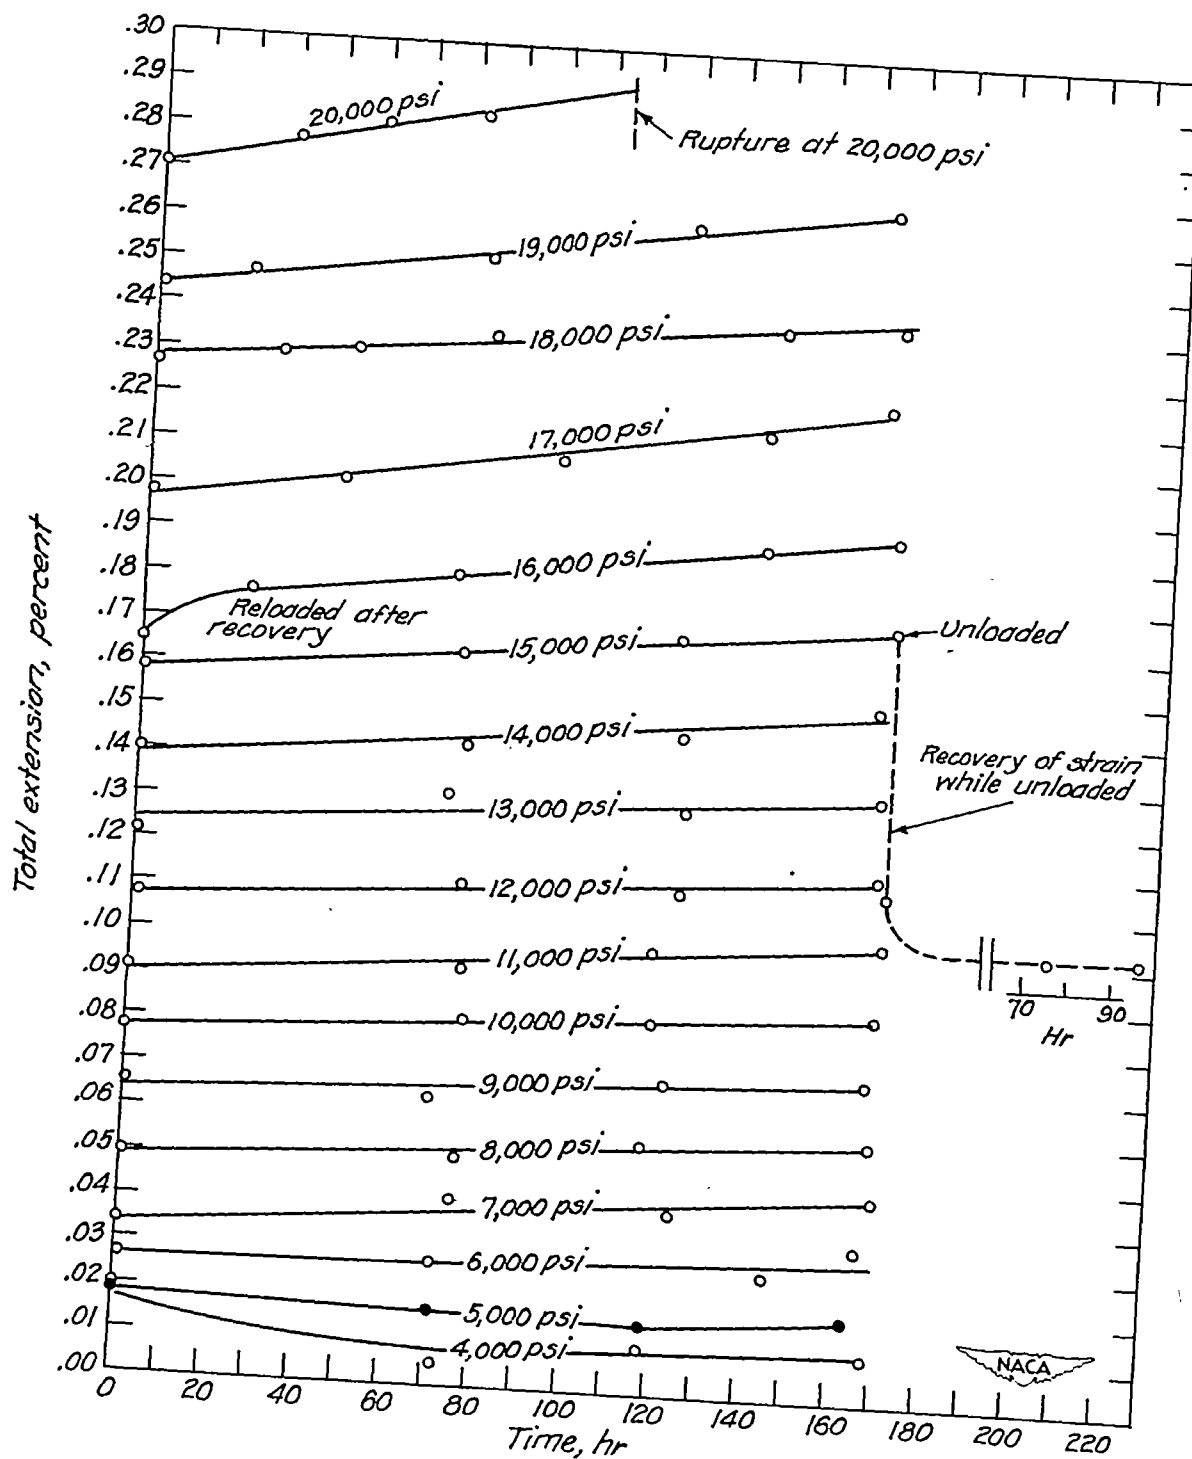 .30
.29
.28
.27
.26
.25
.24
.23
.22
.21
.20
.19
.18
.17
.16
.15
.14
.13
.12
.11
.10
.09
.08
.07
.06
.05
.04
.03
.02
.01
.00
Total extension, percent
20,000 psi
Rupture at 20,000 psi
19,000 psi
18,000 psi
17,000 psi
16,000 psi
Reloaded after
recovery
15,000 psi
Unloaded
14,000 psi
Recovery of strain
while unloaded
13,000 psi
12,000 psi
11,000 psi
70 90
Hr
10,000 psi
9,000 psi
8,000 psi
7,000 psi
6,000 psi
5,000 psi
4,000 psi
NACA
0 20 40 60 80 100 120 140 160 180 200 220
Time, hr